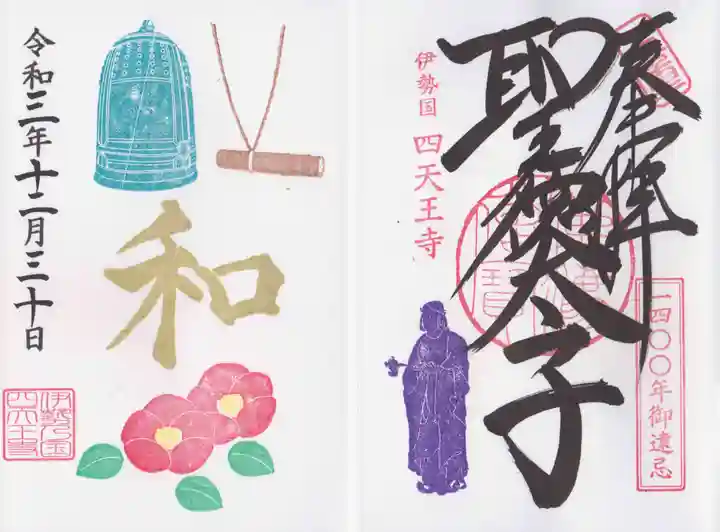 奉拝
聖徳太子
伊勢国 四天王寺
一四〇〇年御遠忌
令和三年十二月三十日
和
伊勢乃国
四天王寺